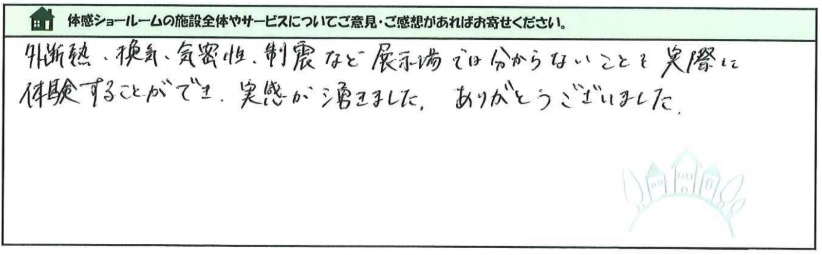 体感ショールームの施設全体やサービスについてご意見・ご感想があればお寄せください。
外断熱、換気、気密性、制震など展示場では分からないことを実際に
体験することができ、実感が湧きました。ありがとうございました。